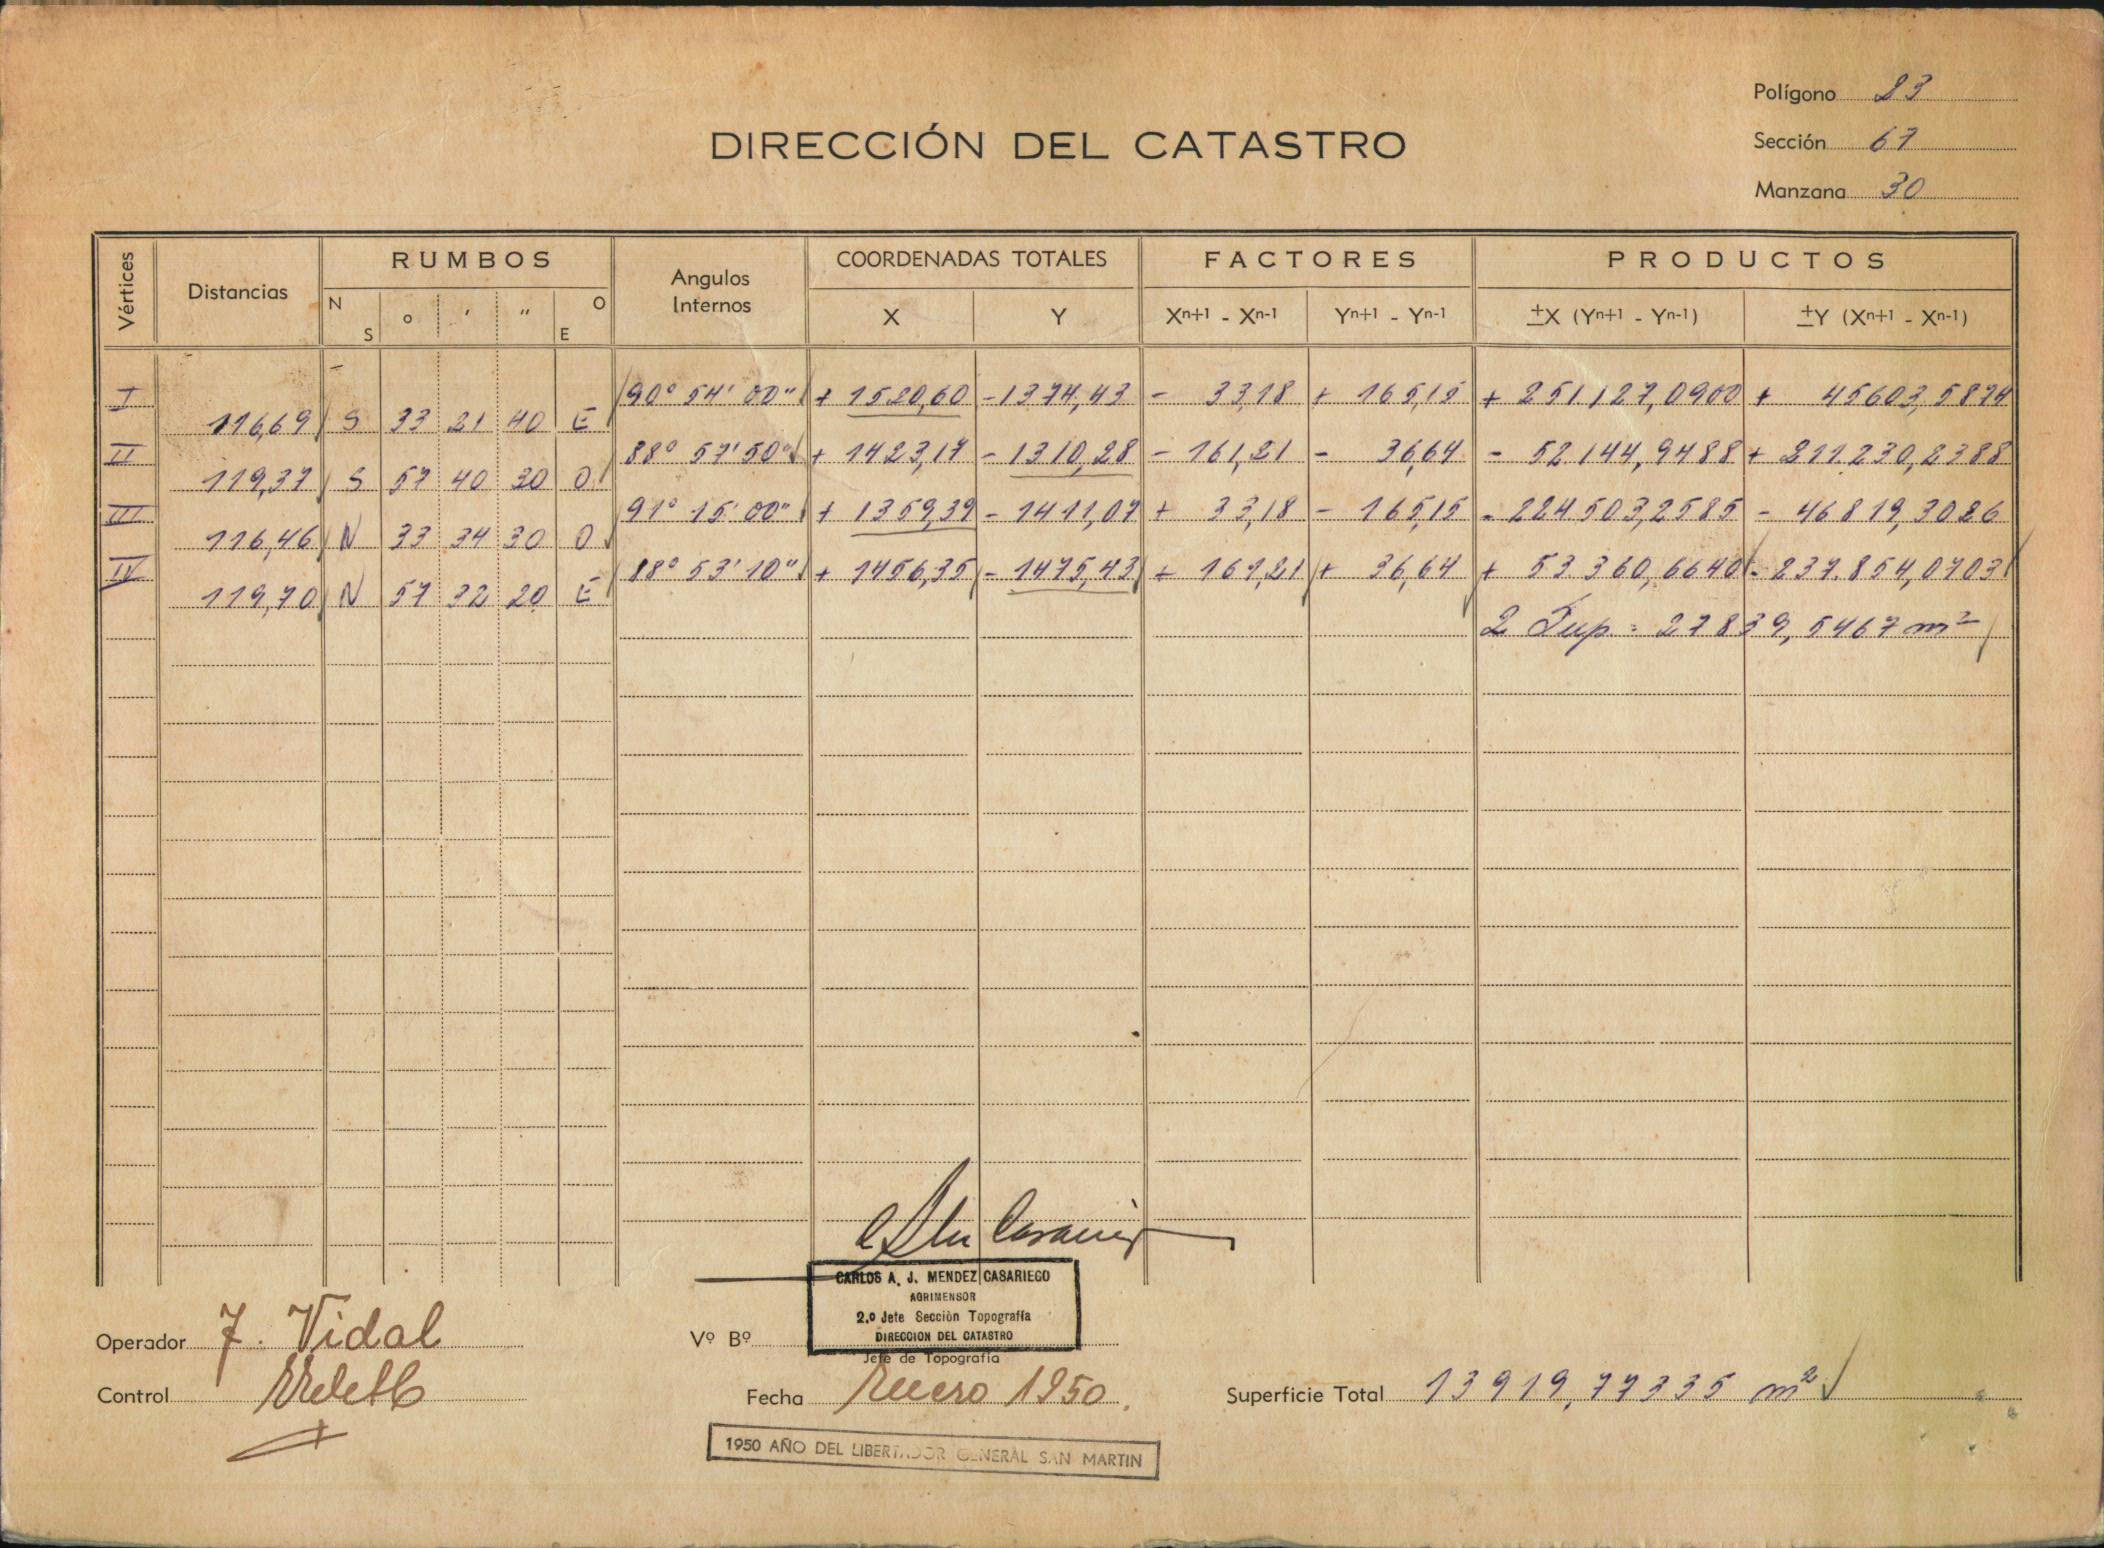 Polígono 23
DIRECCIÓN DEL CATASTRO
Sección 67
Manzana 30
Vértices Distancias RUMBOS Angulos Internos COORDENADAS TOTALES FACTORES PRODUCTOS
N S o ' " O E X Y Xn+1 - Xn-1 Yn+1 - Yn-1 ±X (Yn+1 - Yn-1) ±Y (Xn+1 - Xn-1)
I 90° 54' 00" + 1520,60 - 1374,43 - 33,18 + 165,15 + 251127,0900 + 45603,5874
116,69 S 33 21 40 E
II 88° 57' 50" + 1423,17 - 1310,28 - 161,21 - 36,64 - 52144,9488 + 211.230,2388
119,37 S 57 40 30 O
III 91° 15' 00" + 1359,39 - 1411,07 + 33,18 - 165,15 - 224503,2585 - 46819,3026
116,46 N 33 34 30 O
IV 88° 53' 10" + 1456,35 - 1475,43 + 161,21 + 36,64 + 53.360,6640 - 237.854,0703
119,70 N 57 32 20 E
2 Sup. = 27839,5467 m²
CARLOS A. J. MENDEZ CASARIEGO
AGRIMENSOR
2.º Jefe Sección Topografía
DIRECCION DEL CATASTRO
Operador F. Vidal
Vº Bº
Jefe de Topografía
Control
Fecha Enero 1950.
Superficie Total 13919,77335 m²
1950 AÑO DEL LIBERTADOR GENERAL SAN MARTIN